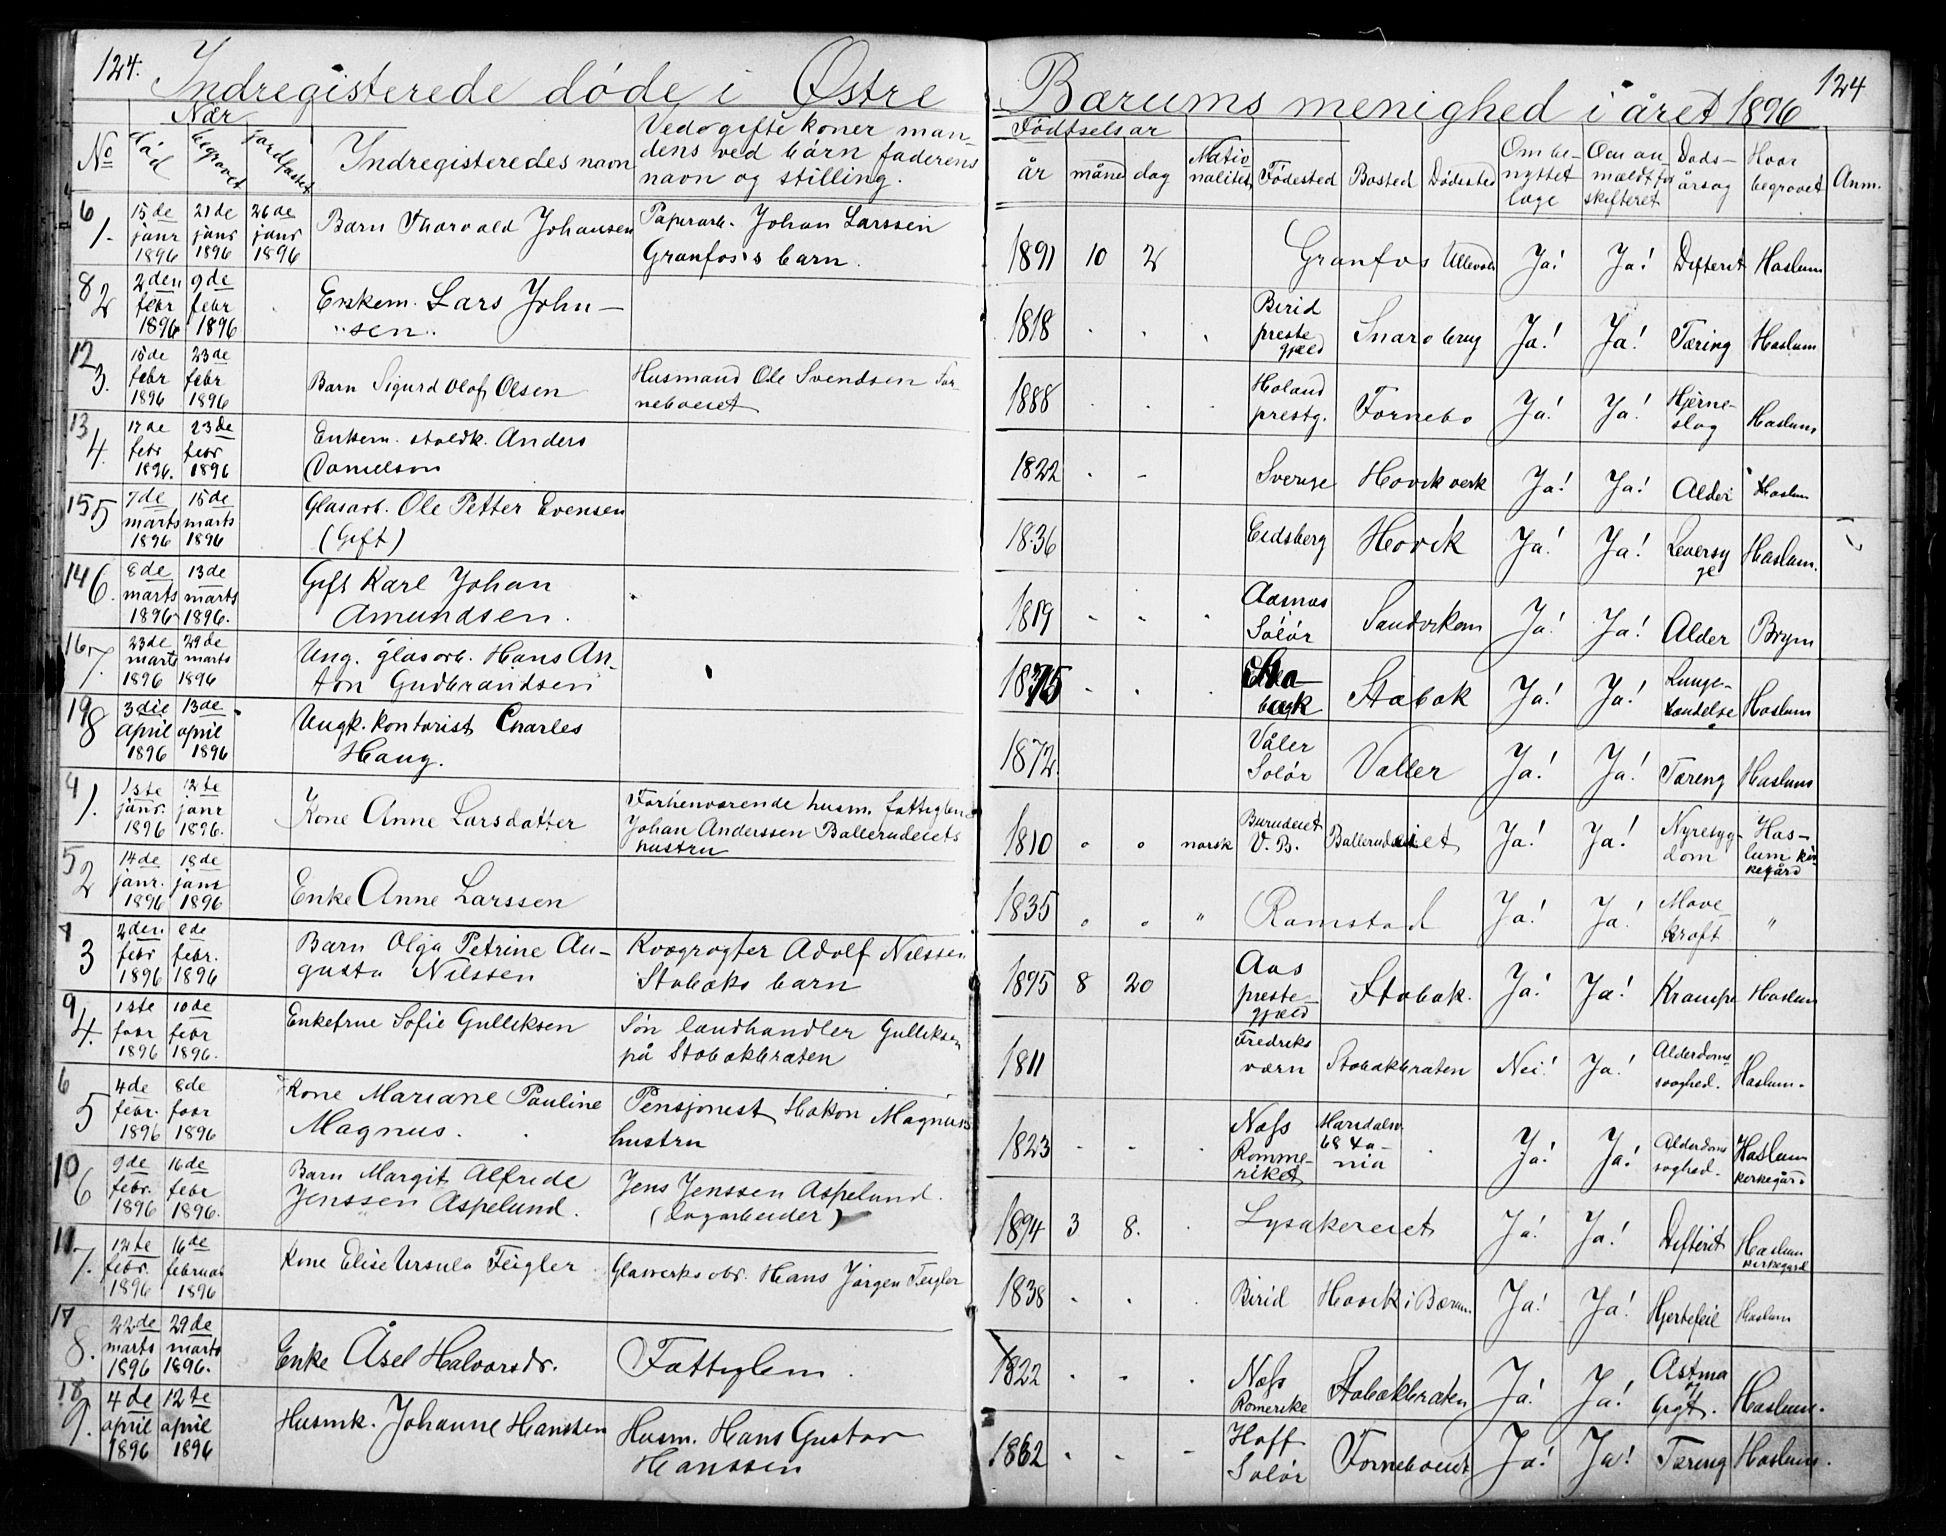 124. Indregisterede døde i Østre Bærums menighed i året 1896 124
Nær
Vedogifte koner man-
dens ved bårn faderens
navn og stilling.
№ død begravet jordfæstet Indregisteredes navn
Fødtselsår
år måned dag Natio-
nalitet Fødested Bosted Dødested
Om be-
nyttet
læge
Om an-
mældt for
skifteret
Døds-
årsag
Hvor
begravet
Anm.
6 1. 15de janr 1896 21de janr 1896 26de janr 1896 Barn Thorvald Johansen Papirarb. Johan Larssen
Granfos's barn. 1891 10 2 Granfos Ullevold Ja! Ja! Defterit Haslum
8 2 2den febr 1896 9de febr 1896 Enkem. Lars John-
sen. 1818 Birid
preste
gjæld Snarøbrug Ja! Ja! Tæring Haslum
12 3. 15de febr 1896 23de febr 1896 Barn Sigurd Olaf Olsen Husmand Ole Svendsen For-
neboeiet 1888 Høland
prestg. Fornebo Ja! Ja! Hjerne-
slag Haslum
13 4. 17de febr 1896. 23de febr 1896 Enkem. staldk. Anders
Danielson 1822 Sverige Høvik verk Ja! Ja! Alder Haslum
15 5 7de marts 1896 15de marts 1896 Glasarb. Ole Petter Evensen
(Gift) 1836 Eidsberg Høvik Ja! Ja! Leversy
ge Haslum.
14 6. 8de marts 1896 13de marts 1896. Gift Karl Johan
Amundsen. 1819 Aasnæs
Solør Sandviken Ja! Ja! Alder Bryn
16 7. 23de marts 1896 29de marts 1896 Ung. glasarb. Hans An-
ton Gudbrandsen 1875 Sta-
bæk Stabæk Ja! Ja! Lunge-
betændelse Haslum
19 8 3die april 1896 13de april 1896 Ungk. kontorist Charles
Haug. 1872. Våler
Solør Valler Ja! Ja! Tæring Haslum
4 1. 1ste janr. 1896 12te janr 1896. Kone Anne Larsdatter Forhenværende husm. fattiglem
Johan Anderssen Ballerudeiets
hustru 1810 norsk Burudeiet
V. B. Ballerudeiet Ja! Ja! Nyresyg-
dom Has-
lum kir-
kegård
5 2 14de janr. 1896 18de janr 1896 Enke Anne Larssen 1835 " Ramstad Ja! Ja! Mave-
kræft "
7 3 2den febr 1896 8de febr. 1896 Barn Olga Petrine Au-
gusta Nilssen Kvægrøgter Adolf Nilssen
Stabæks barn 1895 8 20 Aas
preste-
gjæld Stabæk. Ja! Ja! Krampe Haslum
9 4. 1ste febr 1896 10de febr 1896. Enkefrue Sofie Gulliksen Søn landhandler Gulliksen
på Stabækbråten 1811 Fredriks
værn Stabækbråten Nei! Ja! Alderdoms
svaghed. Haslum.
6 5 4de febr. 1896 8de febr 1896 Kone Mariane Pauline
Magnus. Pensjonist Håkon Magnus
hustru 1823 Næss
Romme-
riket Maridalsv.
68 Xa-
nia Ja! Ja! Alderdoms
svaghed. Haslum
kirkegård
10 6 9de febr. 1896 16de febr 1896. Barn Margit Alfride
Jenssen Aspelund. Jens Jenssen Aspelund.
(Dagarbeider) 1894 3 8. Lysakereiet Ja! Ja! Defterit Haslum
kirkegård
11 7. 12te febr. 1896 16de februar 1896 Kone Elise Ursula Teigler Glasverksarb. Hans Jørgen Teigler 1838 Birid Høvik i Bærum Ja! Ja! Hjertefeil Haslum
17 8. 22de marts 1896 29de marts 1896. Enke Åsel Halvorsdr. Fattiglem. 1822 Næss
Romerike Stabækbråten Ja! Ja! Astma
og
gigt. Haslum.
18 9. 4de april 1896 12te april 1896 Husmk. Johanne Hanssen Husm. Hans Gustav
Hanssen 1862 Hoff
Solør Forneboeiet Ja! Ja! Tæring Haslum.